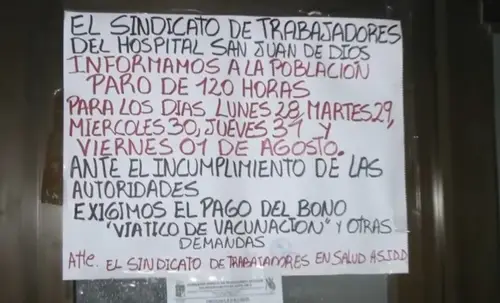 EL SINDICATO DE TRABAJADORES
DEL HOSPITAL SAN JUAN DE DIOS
INFORMAMOS A LA POBLACIÓN
PARO DE 120 HORAS
PARA LOS DIAS LUNES 28, MARTES 29,
MIERCOLES 30, JUEVES 31 Y
VIERNES 01 DE AGOSTO.
ANTE EL INCUMPLIMIENTO DE LAS
AUTORIDADES
EXIGIMOS EL PAGO DEL BONO
"VIATICO DE VACUNACION" Y OTRAS
DEMANDAS
Atte. EL SINDICATO DE TRABAJADORES EN SALUD HSJDD